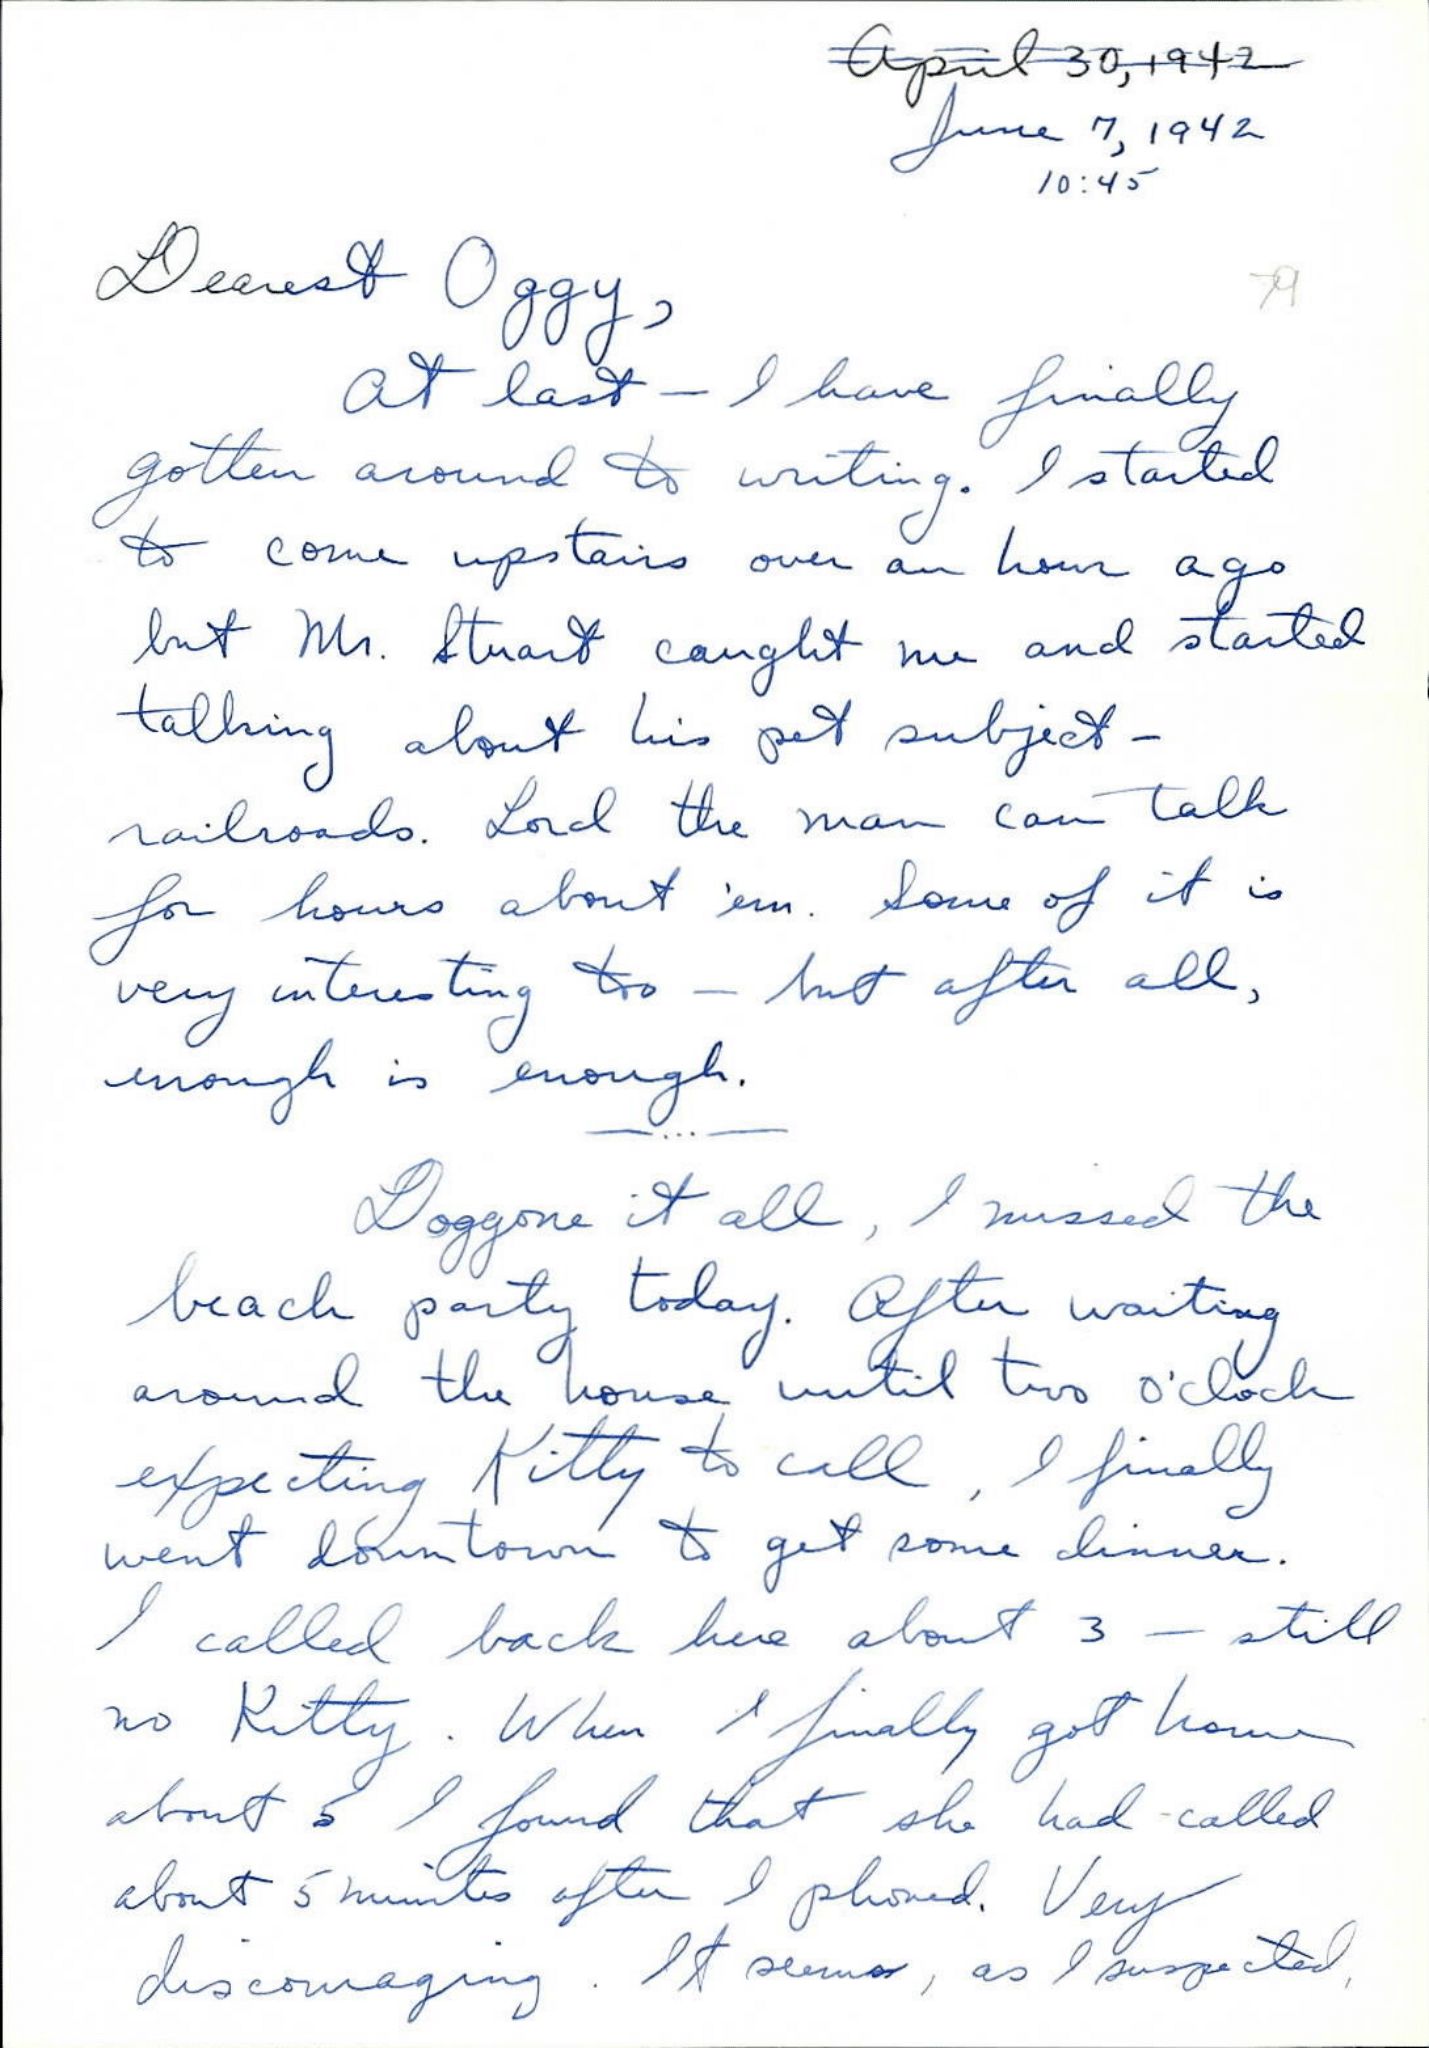 April 30, 1942
June 7, 1942
10:45
Dearest Oggy,
79
At last — I have finally
gotten around to writing. I started
to come upstairs over an hour ago
but Mr. Stuart caught me and started
talking about his pet subject –
railroads. Lord the man can talk
for hours about 'em. Some of it is
very interesting too — but after all,
enough is enough.
—...—
Doggone it all, I missed the
beach party today. After waiting
around the house until two o'clock
expecting Kitty to call, I finally
went downtown to get some dinner.
I called back here about 3 — still
no Kitty. When I finally got home
about 5 I found that she had called
about 5 minutes after I phoned. Very
discouraging. It seems, as I suspected,